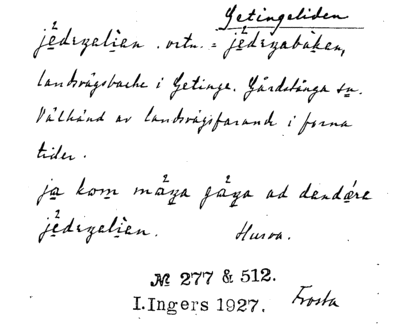 Getingeliden
jèdıŋalìen. ortn. = jèdıŋabàken,
landsvägsbacke i Getinge, Gårdstånga sn.
Välkänd av landsvägsfarande i forna
tider.
ja kom måŋa gåŋa ad dendære
jèdıŋalìen. Hurva.
№ 277 & 512.
I.Ingers 1927. Frosta